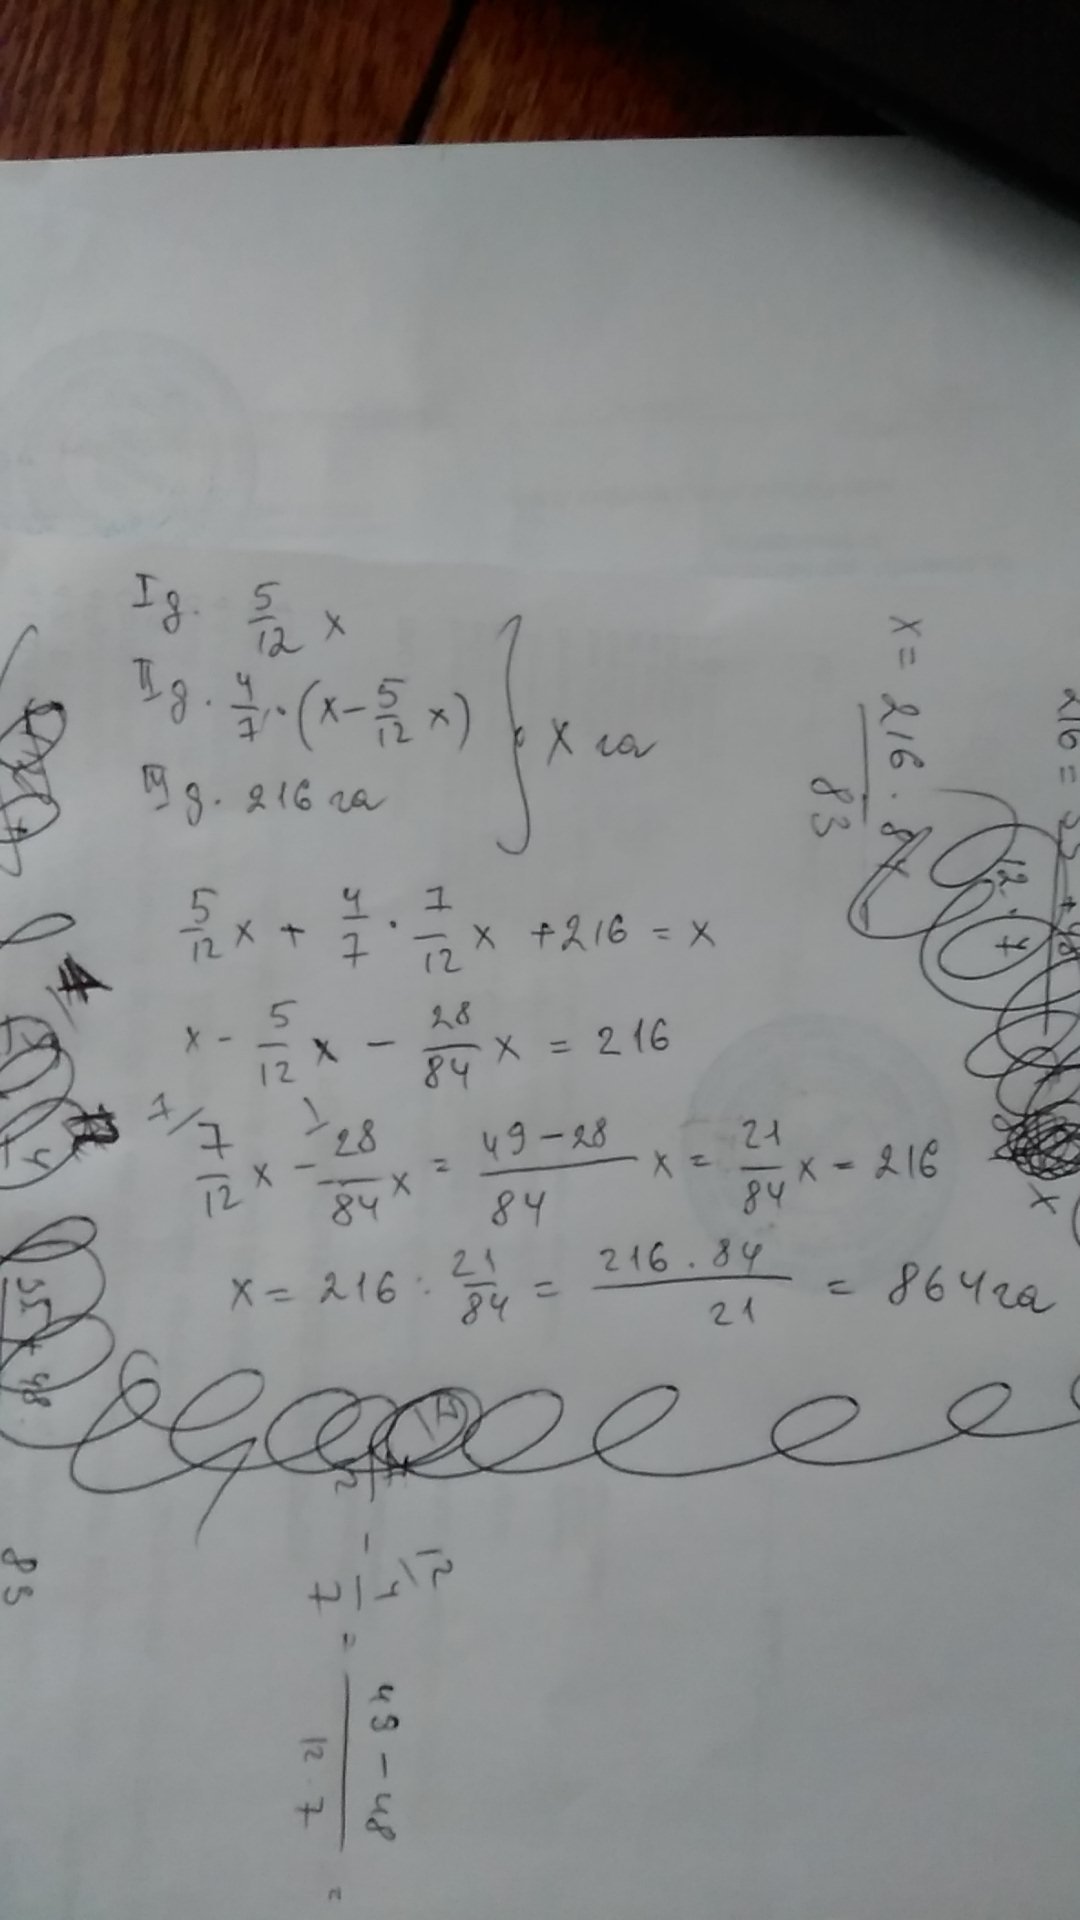 I g. 5/12 x
II g. 4/7 · (x - 5/12 x) } x га
III g. 216 га
5/12 x + 4/7 · 7/12 x + 216 = x
x - 5/12 x - 28/84 x = 216
7/ 7/12 x - 1/ 28/84 x = (49 - 28)/84 x = 21/84 x = 216
x = 216 : 21/84 = (216 . 84)/21 = 864 га
x = 216 ·
83
12 · 7
x
35 + 48
83
12/
- 4/7 = (49 - 48)/(12 · 7) =